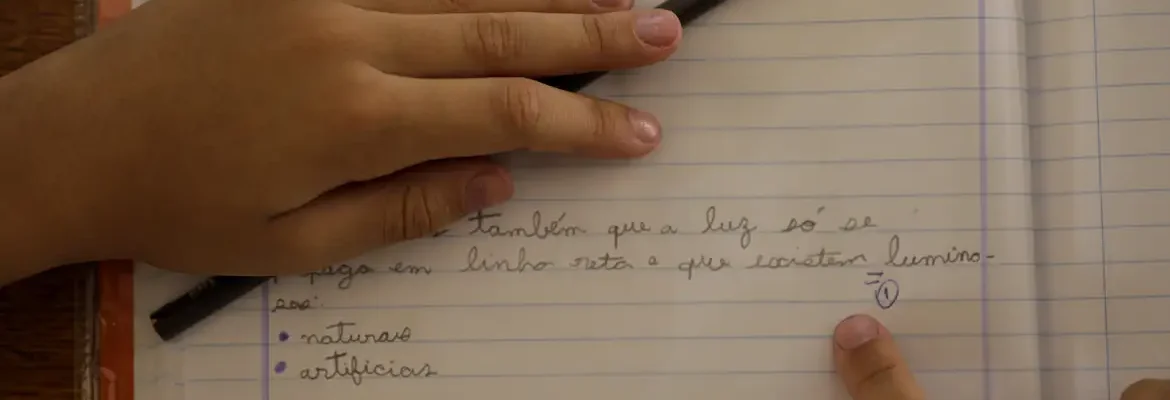 também que a luz só se
em linha reta e que existem lumino-
sos:
①
• naturais
• artificias